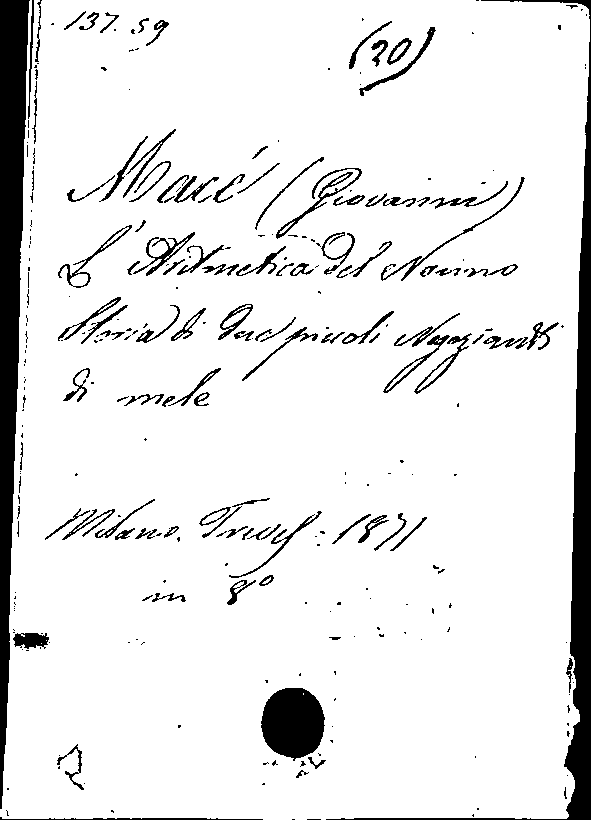 137. 59
(20)
Macé (Giovanni)
L'Aritmetica del Nonno
Storia di due piccoli Negozianti
di mele
Milano. Treves. 1871
in 8°